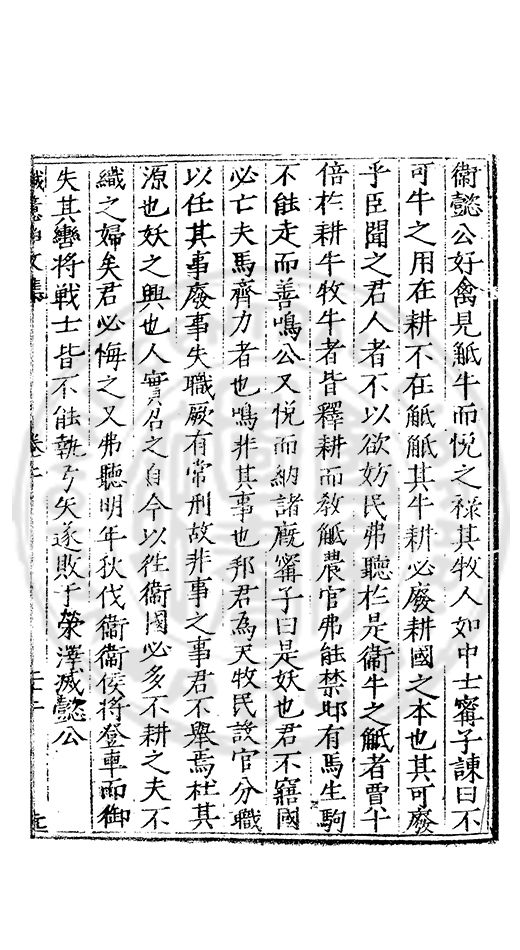 衞懿公好禽見觝牛而悅之祿其牧人如中士甯子諫曰不
可牛之用在耕不在觝觝其牛耕必廢耕國之本也其可廢
乎臣聞之君人者不以欲妨民弗聽於是衞牛之觝者賈十
倍於耕牛牧牛者皆釋耕而敎觝農官弗能禁邶有馬生駒
不能走而善鳴公又悅而納諸廐甯子曰是妖也君不寤國
必亡夫馬齊力者也鳴非其事也邦君爲天牧民設官分職
以任其事廢事失職厥有常刑故非事之事君不舉焉杜其
源也妖之興也人實召之自今以徃衞國必多不耕之夫不
織之婦矣君必悔之又弗聽明年狄伐衞衞侯將登車而御
失其轡將戰士皆不能執弓矢遂敗于滎澤滅懿公
誠意伯文集 卷之